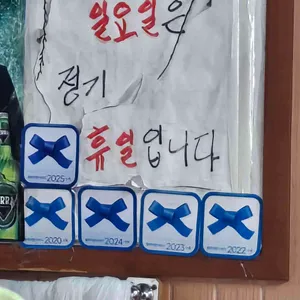 일요일은
정기
휴일입니다
2025
2020
2024
2023
2022